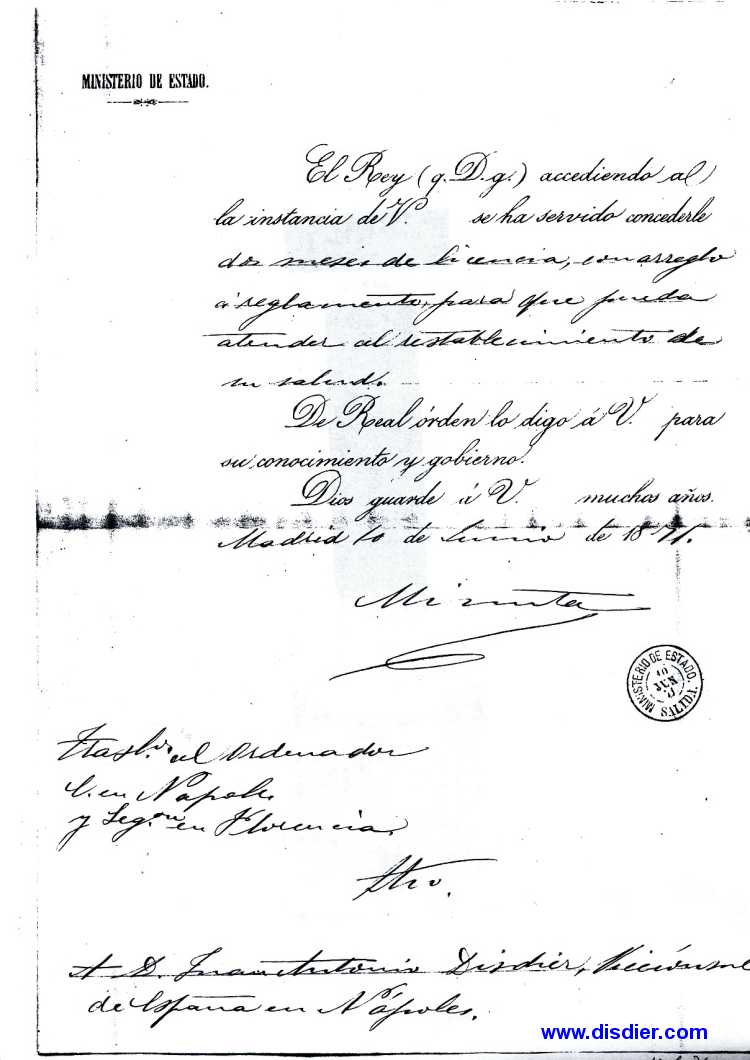 MINISTERIO DE ESTADO.
El Rey (q. D. g.) accediendo al
la instancia de V. se ha servido concederle
dos meses de licencia, con arreglo
á reglamento, para que pueda
atender al restablecimiento de
su salud.
De Real órden lo digo á V. para
su conocimiento y gobierno.
Dios guarde á V. muchos años.
Madrid 10 de Junio de 1871.
Minuta
MINISTERIO DE ESTADO.
10
JUN
71
SALIDA
al Ordenador
C. en Nápoles
y Leg.on en Florencia.
A D. Juan Antonio Disdier, Vicecónsul
de España en Nápoles.
www.disdier.com